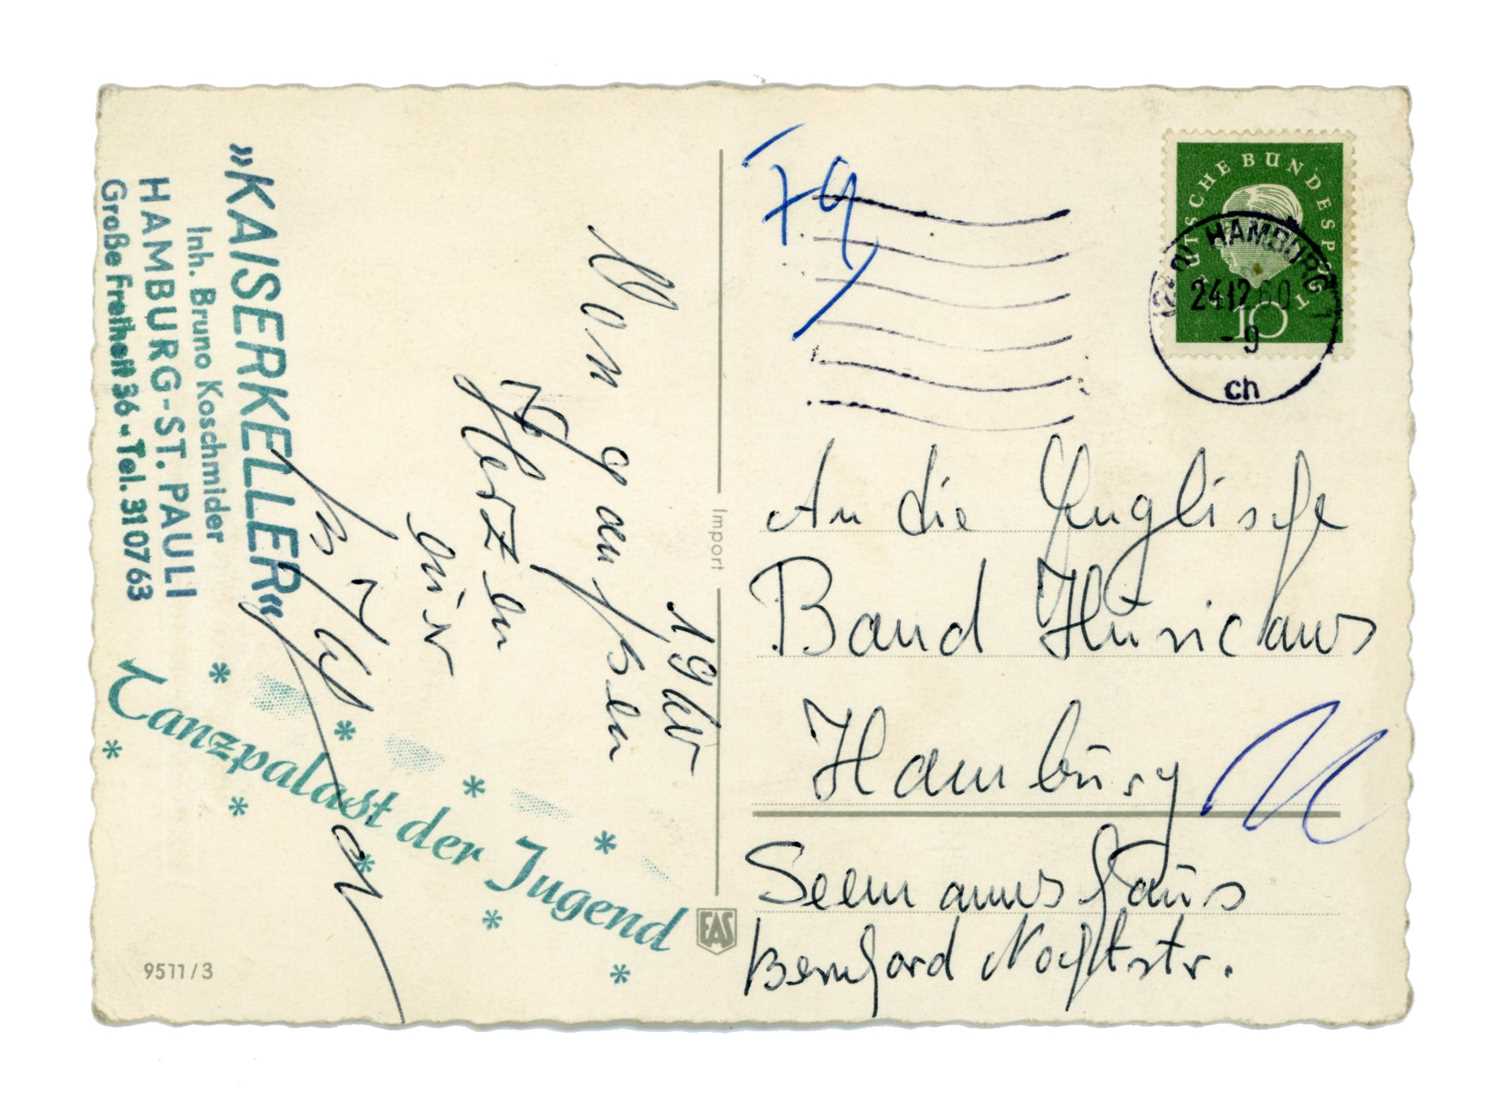 »KAISERKELLER«
Inh. Bruno Koschmider
HAMBURG-ST. PAULI
Große Freiheit 36 - Tel. 310763
Tanzpalast der Jugend
Von ganßen
Herzen
9511/3
Import
EAS
DEUTSCHE BUNDESPOST
10
HAMBURG 1
24.12.60-9
ch
An die Englische
Band Huricans
Hamburg
Seemannshaus
Bernhard Nochtstr.